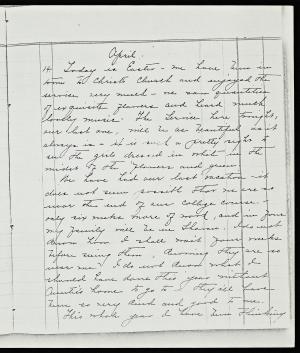 April.
14 Today is Easter - we have been in
town to Christ Church and enjoyed the
service very much - we saw quantities
of exquisite flowers and heard much
lovely music. The Service here tonight,
our last one, will be as beautiful as it
always is - it is such a pretty sight to
see the girls dressed in white in the
midst of the flowers and green.
We have had our last vacation - it
does not seem possible that we are so
near the end of our college course -
only six weeks more of work, and in four
my family will be in I do not
know how I shall wait four weeks
before seeing them, knowing they are so
near me! I do not know what I
should have done this year without
Auntie's home to go to - they all have
been so very kind and good to me.
This whole year I have been thinking